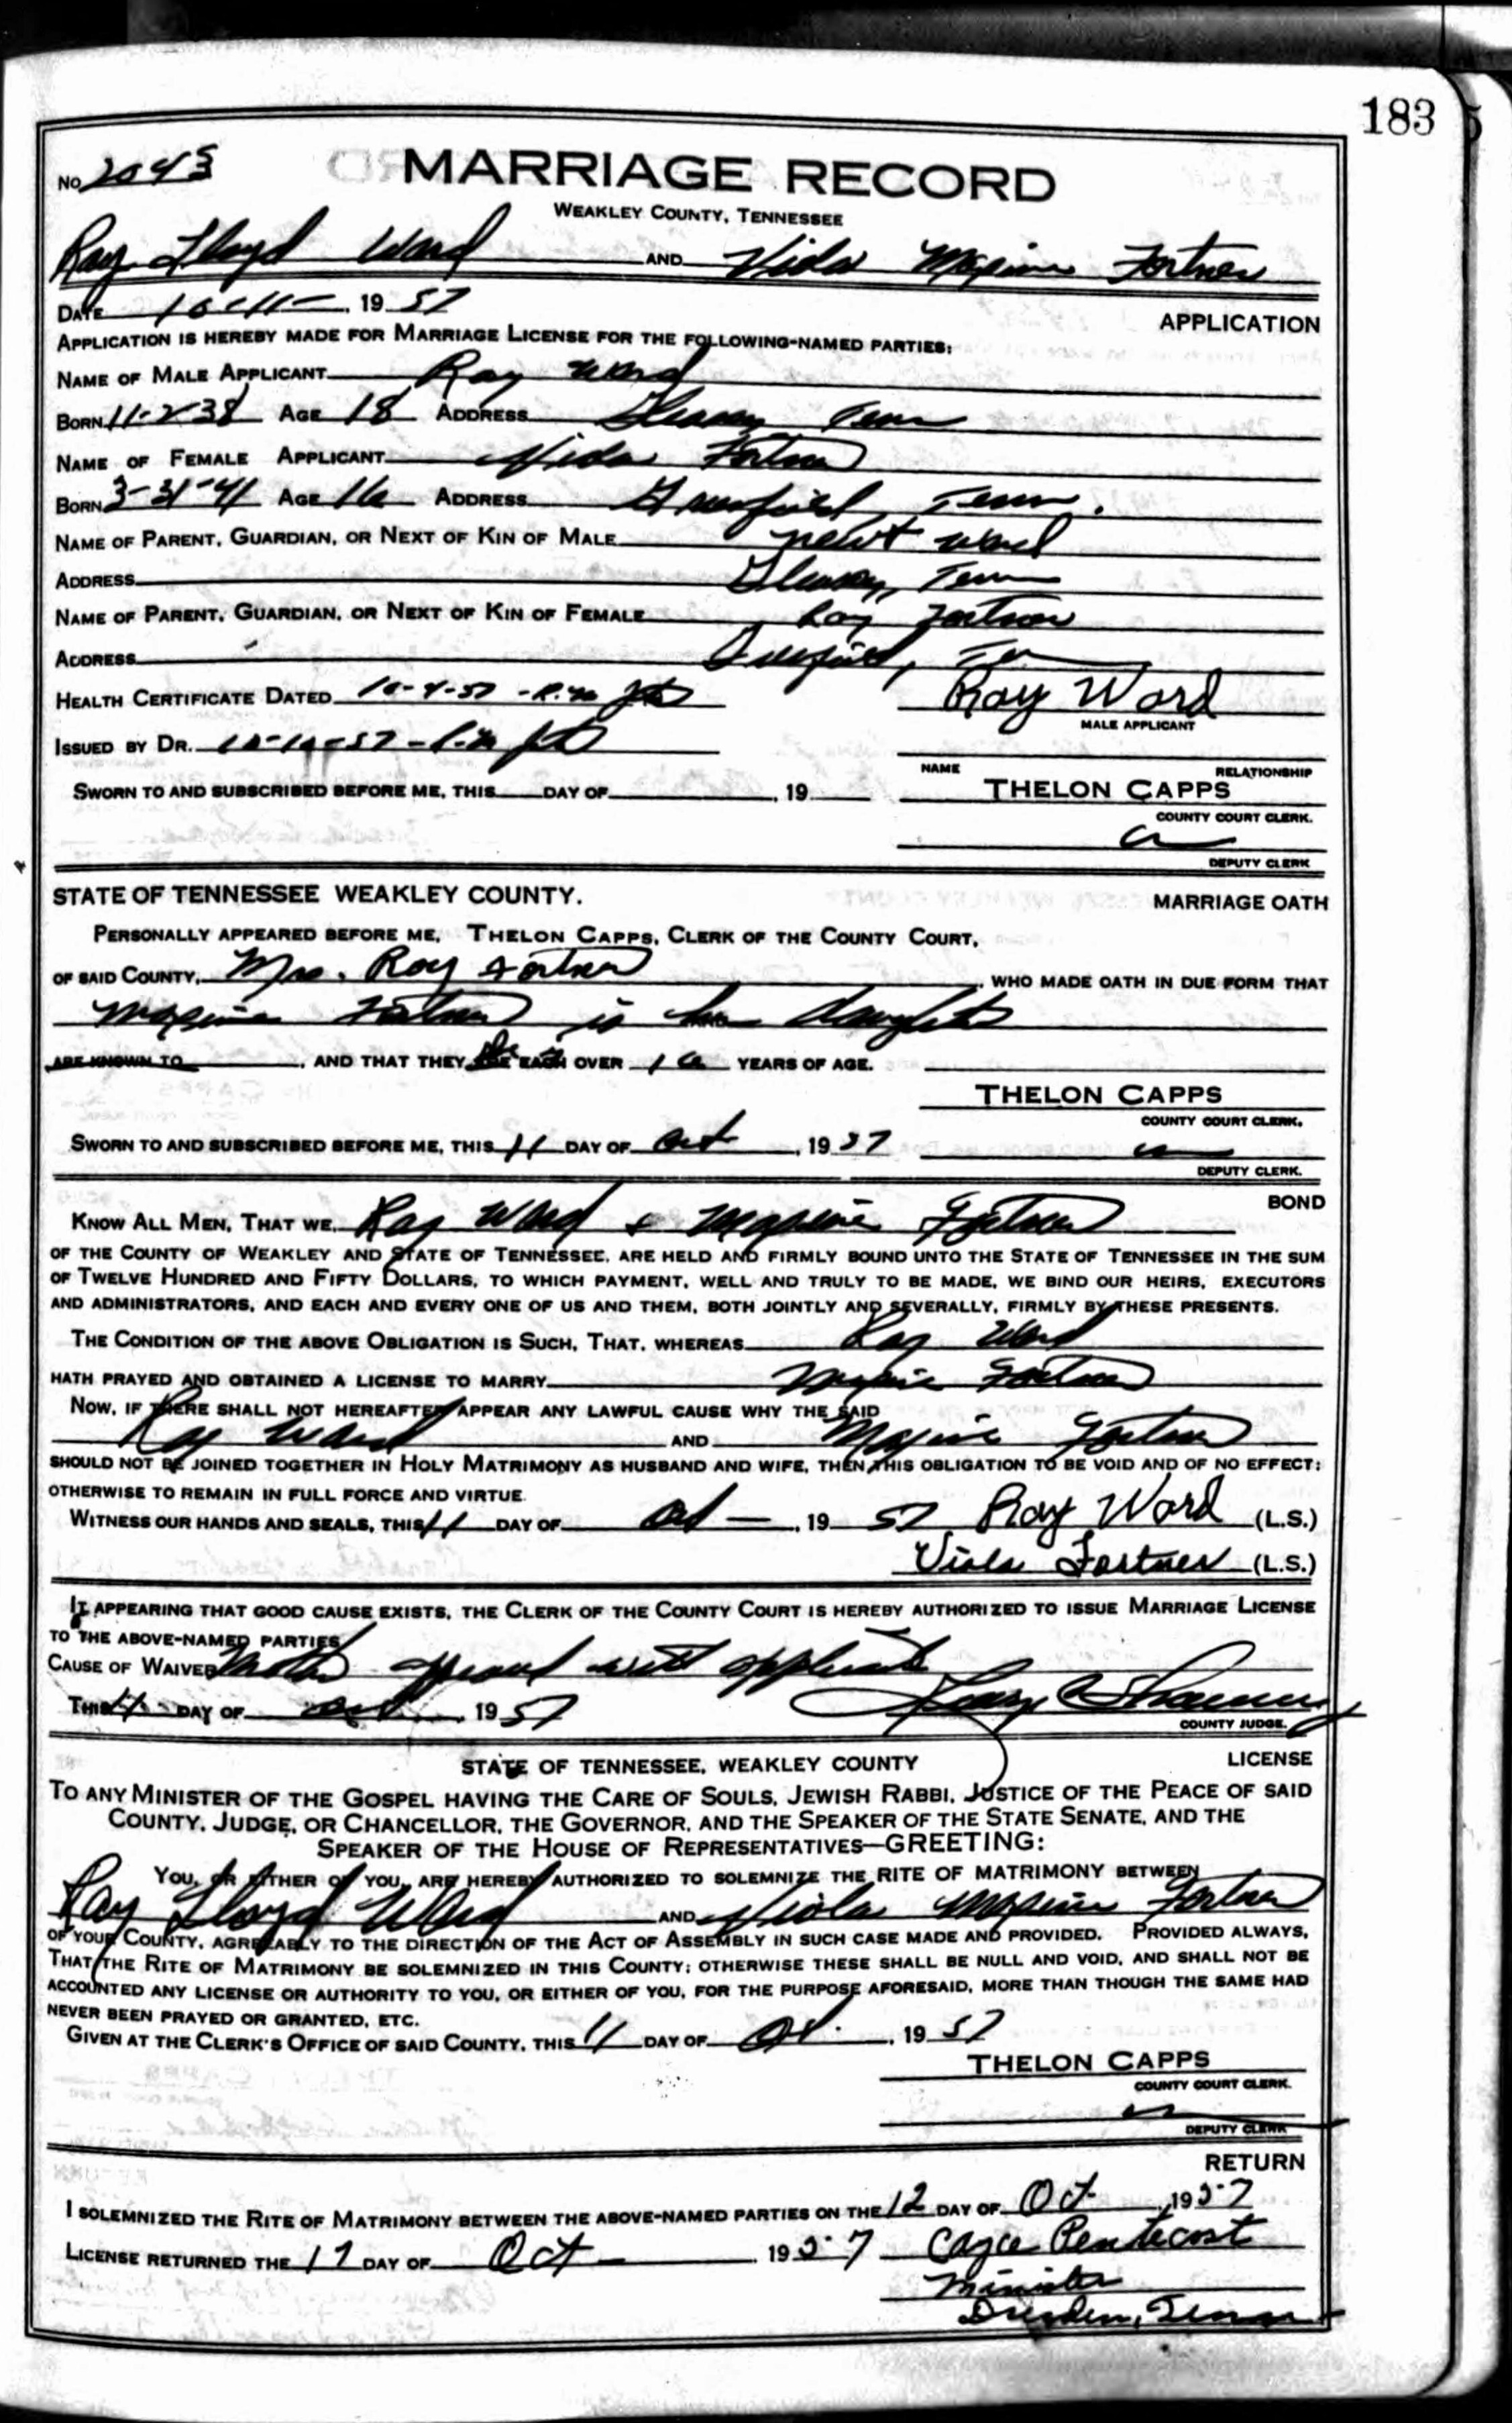 183
No. 2043 MARRIAGE RECORD
WEAKLEY COUNTY, TENNESSEE
Ray Lloyd Ward AND Maxine Fortner
DATE 10-11- 1957
APPLICATION
APPLICATION IS HEREBY MADE FOR MARRIAGE LICENSE FOR THE FOLLOWING-NAMED PARTIES:
NAME OF MALE APPLICANT Ray Ward
BORN 11-2-38 AGE 18 ADDRESS Gleason Tenn
NAME OF FEMALE APPLICANT Fortner
BORN 3-31-41 AGE 16 ADDRESS Greenfield, Tenn.
NAME OF PARENT, GUARDIAN, OR NEXT OF KIN OF MALE Newt Ward
ADDRESS Gleason, Tenn
NAME OF PARENT, GUARDIAN, OR NEXT OF KIN OF FEMALE Roy Fortner
ADDRESS Greenfield, Tenn
HEALTH CERTIFICATE DATED 10-9-57 Ray Ward
MALE APPLICANT
ISSUED BY DR. 10-10-57
NAME RELATIONSHIP
SWORN TO AND SUBSCRIBED BEFORE ME, THIS DAY OF , 19 THELON CAPPS
COUNTY COURT CLERK.
DEPUTY CLERK
STATE OF TENNESSEE WEAKLEY COUNTY. MARRIAGE OATH
PERSONALLY APPEARED BEFORE ME, THELON CAPPS, CLERK OF THE COUNTY COURT,
OF SAID COUNTY, Mrs. Roy Fortner , WHO MADE OATH IN DUE FORM THAT
Maxine Fortner is her daughter
ARE KNOWN TO , AND THAT THEY EACH OVER 16 YEARS OF AGE.
THELON CAPPS
COUNTY COURT CLERK,
SWORN TO AND SUBSCRIBED BEFORE ME, THIS 11 DAY OF Oct , 1957
DEPUTY CLERK.
BOND
KNOW ALL MEN, THAT WE, Ray Ward & Maxine Fortner
OF THE COUNTY OF WEAKLEY AND STATE OF TENNESSEE, ARE HELD AND FIRMLY BOUND UNTO THE STATE OF TENNESSEE IN THE SUM
OF TWELVE HUNDRED AND FIFTY DOLLARS, TO WHICH PAYMENT, WELL AND TRULY TO BE MADE, WE BIND OUR HEIRS, EXECUTORS
AND ADMINISTRATORS, AND EACH AND EVERY ONE OF US AND THEM, BOTH JOINTLY AND SEVERALLY, FIRMLY BY THESE PRESENTS.
THE CONDITION OF THE ABOVE OBLIGATION IS SUCH, THAT, WHEREAS Ray Ward
HATH PRAYED AND OBTAINED A LICENSE TO MARRY Maxine Fortner
NOW, IF THERE SHALL NOT HEREAFTER APPEAR ANY LAWFUL CAUSE WHY THE SAID
Ray Ward AND Maxine Fortner
SHOULD NOT BE JOINED TOGETHER IN HOLY MATRIMONY AS HUSBAND AND WIFE, THEN THIS OBLIGATION TO BE VOID AND OF NO EFFECT;
OTHERWISE TO REMAIN IN FULL FORCE AND VIRTUE.
WITNESS OUR HANDS AND SEALS, THIS 11 DAY OF Oct , 1957 Ray Ward (L.S.)
Viola Fortner (L.S.)
IT APPEARING THAT GOOD CAUSE EXISTS, THE CLERK OF THE COUNTY COURT IS HEREBY AUTHORIZED TO ISSUE MARRIAGE LICENSE
TO THE ABOVE-NAMED PARTIES
CAUSE OF WAIVER Mother
THIS 11 DAY OF Oct , 1957
COUNTY JUDGE.
STATE OF TENNESSEE, WEAKLEY COUNTY LICENSE
TO ANY MINISTER OF THE GOSPEL HAVING THE CARE OF SOULS, JEWISH RABBI, JUSTICE OF THE PEACE OF SAID
COUNTY, JUDGE, OR CHANCELLOR, THE GOVERNOR, AND THE SPEAKER OF THE STATE SENATE, AND THE
SPEAKER OF THE HOUSE OF REPRESENTATIVES—GREETING:
YOU, OR EITHER OF YOU, ARE HEREBY AUTHORIZED TO SOLEMNIZE THE RITE OF MATRIMONY BETWEEN
Ray Lloyd Ward AND Viola Maxine Fortner
OF YOUR COUNTY, AGREEABLY TO THE DIRECTION OF THE ACT OF ASSEMBLY IN SUCH CASE MADE AND PROVIDED. PROVIDED ALWAYS,
THAT THE RITE OF MATRIMONY BE SOLEMNIZED IN THIS COUNTY; OTHERWISE THESE SHALL BE NULL AND VOID, AND SHALL NOT BE
ACCOUNTED ANY LICENSE OR AUTHORITY TO YOU, OR EITHER OF YOU, FOR THE PURPOSE AFORESAID, MORE THAN THOUGH THE SAME HAD
NEVER BEEN PRAYED OR GRANTED, ETC.
GIVEN AT THE CLERK'S OFFICE OF SAID COUNTY, THIS 11 DAY OF Oct. , 1957
THELON CAPPS
COUNTY COURT CLERK.
DEPUTY CLERK
RETURN
I SOLEMNIZED THE RITE OF MATRIMONY BETWEEN THE ABOVE-NAMED PARTIES ON THE 12 DAY OF Oct , 1957
LICENSE RETURNED THE 17 DAY OF Oct 1957 Cayce Pentecost
Minister
Dresden, Tenn